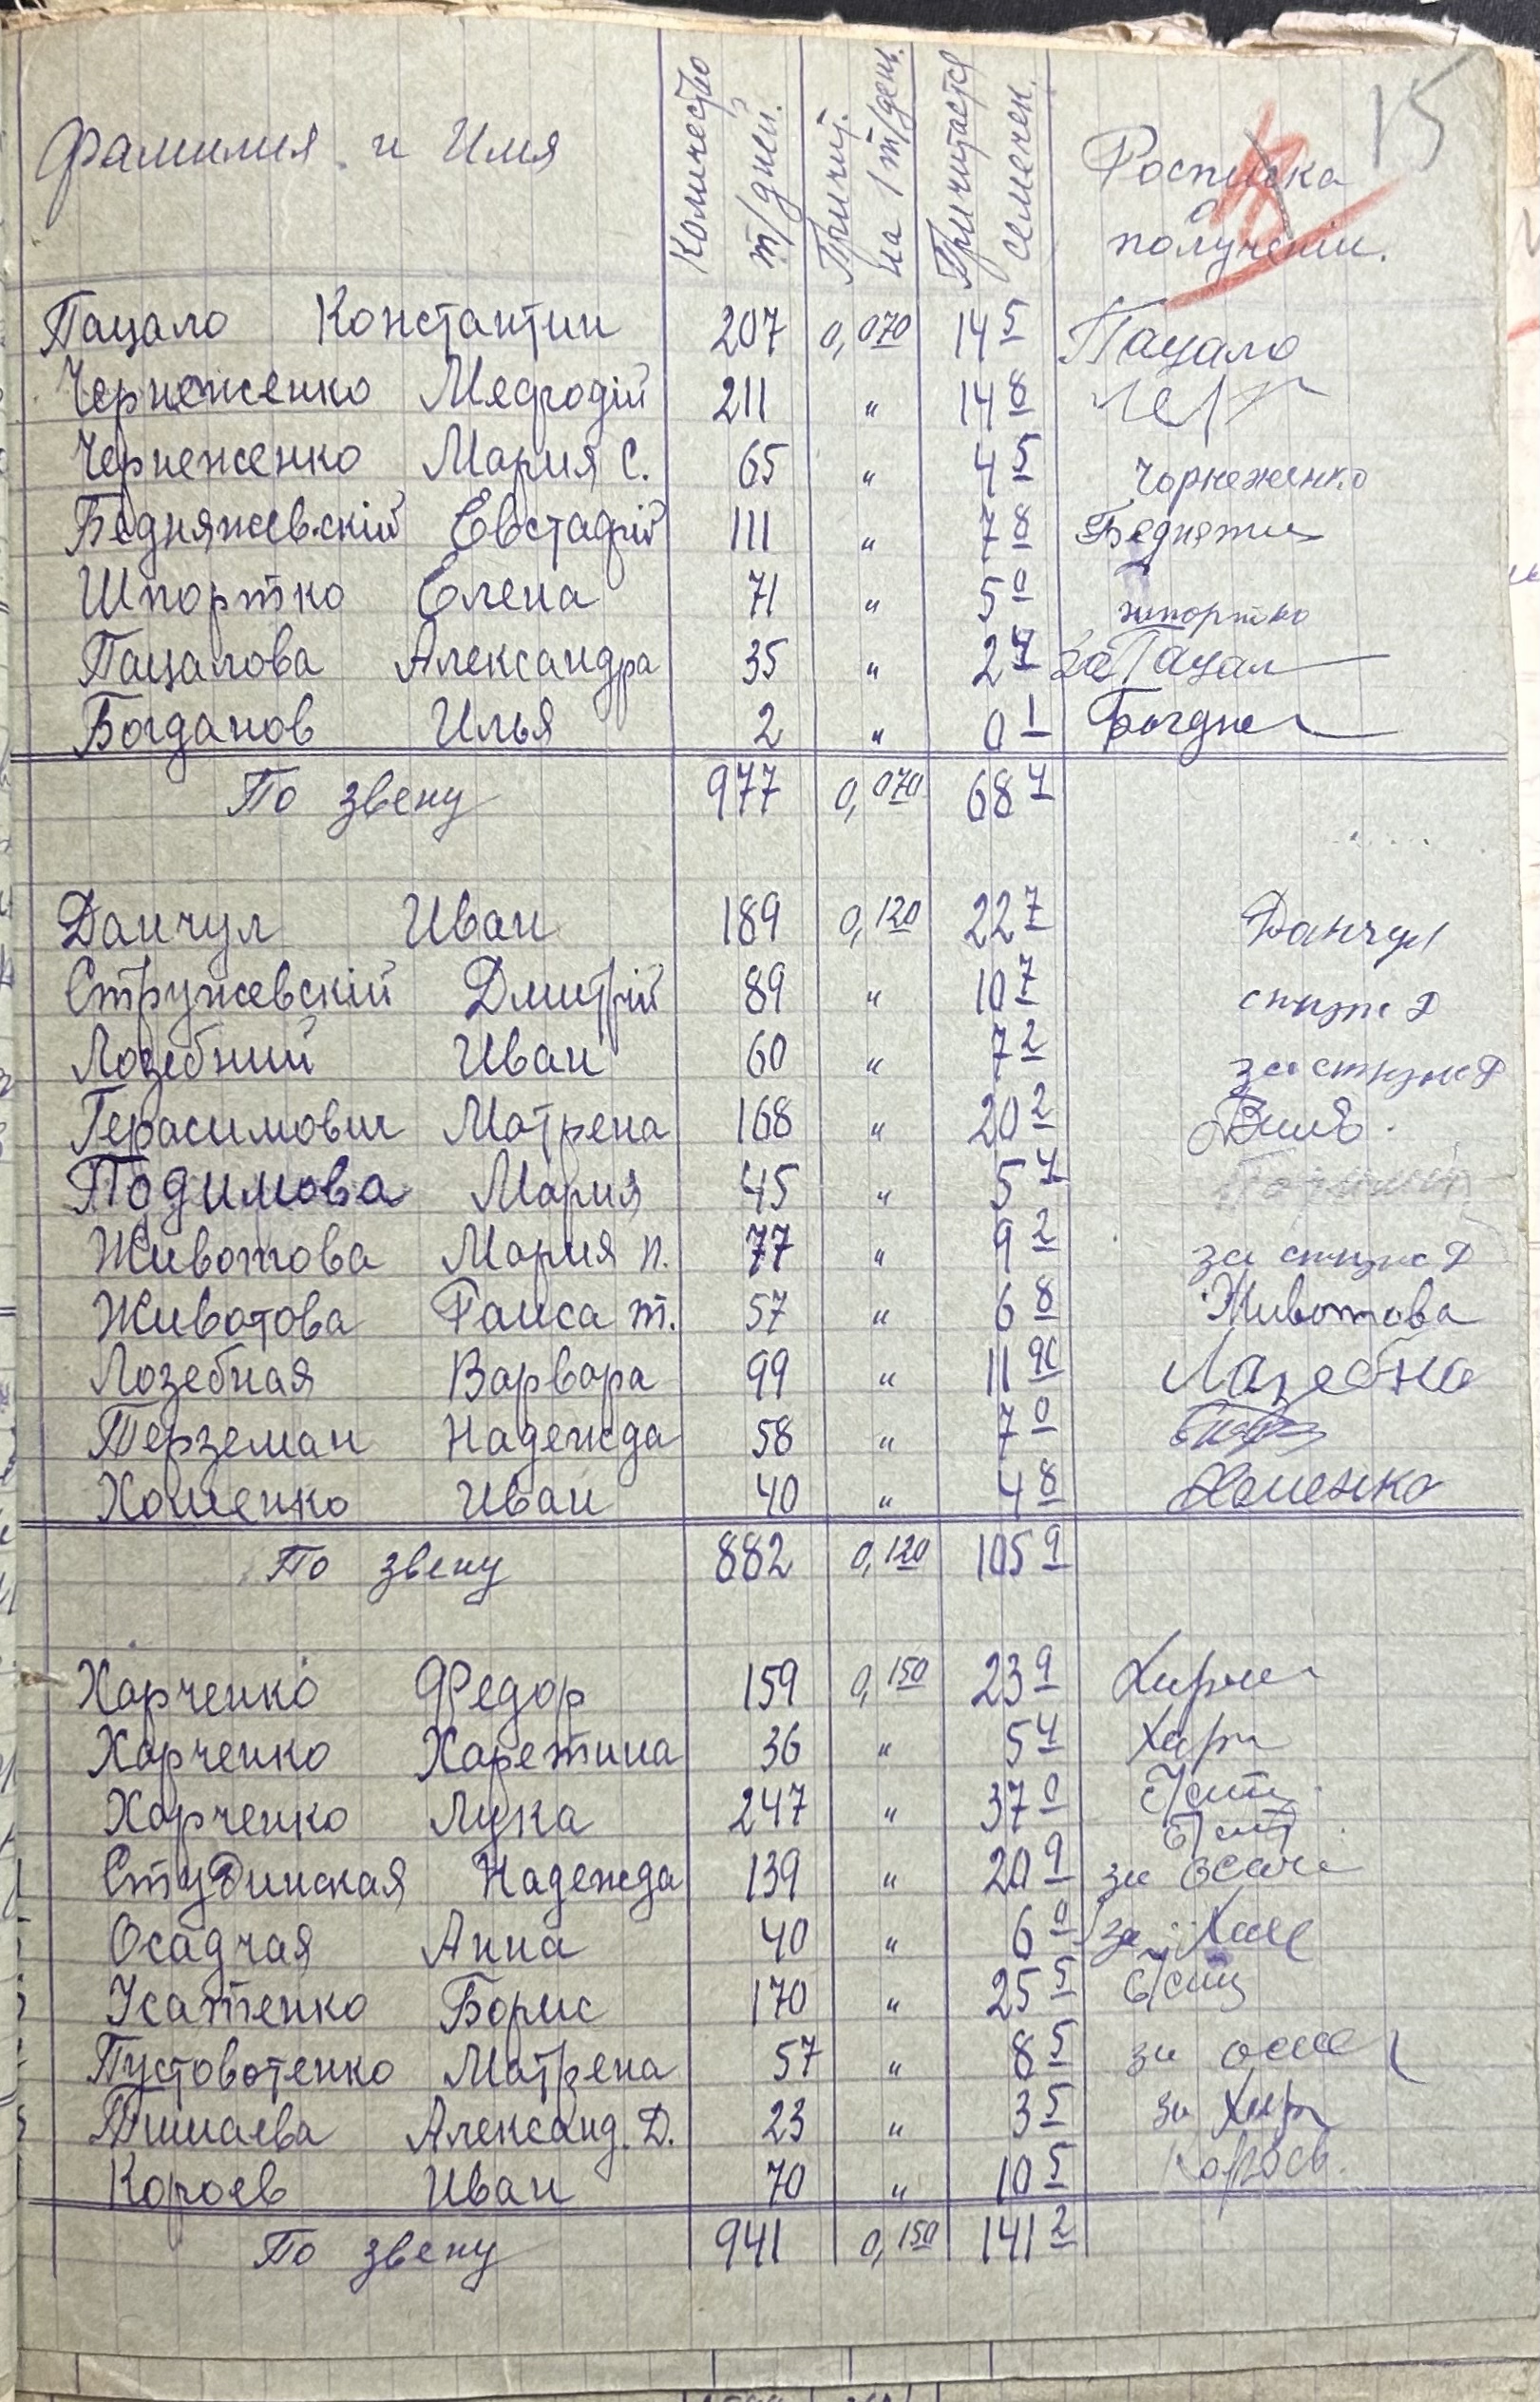 15
Фамилия и Имя Количество т/дней. Причит. на 1 т/день. Причитается семечек. Росписка о получении.
Пацало Константин 207 0,070 14 5 Пацало
Чернеженко Мефодій 211 " 14 8
Чернеженко Мария С. 65 " 4 5 Чорнеженко
Бедняжевскій Евстафій 111 " 7 8 Бедняжи
Шпортко Елена 71 " 5 0 шпортко
Пацалова Александра 35 " 2 4 за Пацал
Богданов Илья 2 " 0 1 Богдан
По звену 977 0,070 68 4
Данчул Иван 189 0,120 22 7 Данчул
Стружевскій Дмитрій 89 " 10 7
Лозебний Иван 60 " 7 2 за
Герасимович Мотрена 168 " 20 2
Подимова Мария 45 " 5 4
Животова Мария П. 77 " 9 2 за
Животова Раиса Т. 57 " 6 8 Животова
Лозебная Варвара 99 " 11 90 Лазебна
Терземан Надежда 58 " 7 0
Хоменко Иван 40 " 4 8 Хоменко
По звену 882 0,120 105 9
Харченко Федор 159 0,150 23 9 Харч
Харченко Харетина 36 " 5 4 Харч
Харченко Лука 247 " 37 0
Студинская Надежда 139 " 20 9 за
Осадчая Анна 40 " 6 0 за
Усатенко Борис 170 " 25 5
Пустовотенко Мотрена 57 " 8 5 за
Тишаева Александ. Д. 23 " 3 5 за Хар
Короев Иван 70 " 10 5 Короев.
По звену 941 0,150 141 2